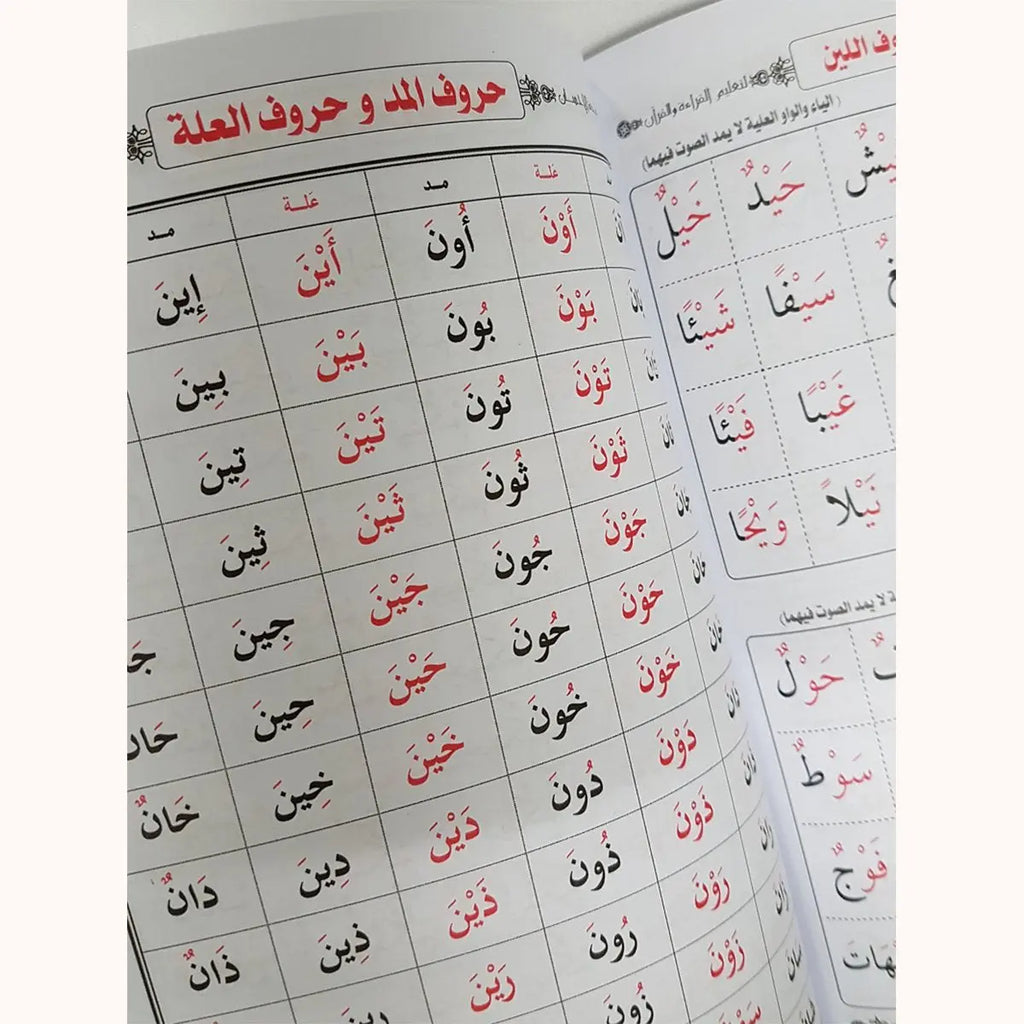 حروف المد و حروف العلة
عَلـة مـد عَلـة مـد
أَوْنَ أُونَ أَيْنَ إِينَ
بَوْنَ بُونَ بَيْنَ بِينَ
تَوْنَ تُونَ تَيْنَ تِينَ
ثَوْنَ ثُونَ ثَيْنَ ثِينَ
جَوْنَ جُونَ جَيْنَ جِينَ
حَوْنَ حُونَ حَيْنَ حِينَ حَانَ
خَوْنَ خُونَ خَيْنَ خِينَ خَانٌ
دَوْنَ دُونَ دَيْنَ دِينَ دَانٌ
ذَوْنَ ذُونَ ذَيْنَ ذِينَ ذَانٌ
رَوْنَ رُونَ رَيْنَ رِينَ
زَوْنَ زُونَ
اللين
لتعليم القراءة والقرآن
(الياء والواو العلية لا يمد الصوت فيهما)
حَيْدٌ خَيْلٌ
سَيْفًا شَيْئًا
غَيْبًا فَيْئًا
نَيْلاً وَيْحًا
لا يمد الصوت فيهما)
حَوْلٌ
سَوْطٌ
فَوْجٌ